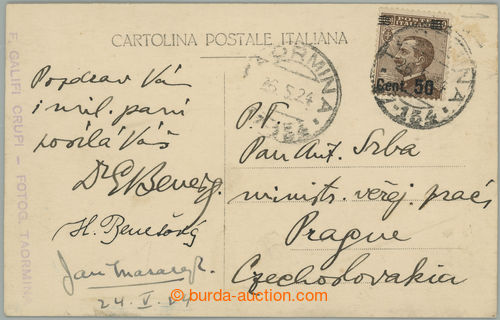 CARTOLINA POSTALE ITALIANA
F. GALIFI CRUPI - FOTOG. TAORMIN
POSTE ITALIANE
Cent. 50
TAORMINA
26.5.24
Pozdrav Vám
i mil. paní
posílá Váš
Dr E Beneš.
H. Benešová
Jan Masaryk
24. V. 24
P. T.
Pan Ant. Srba
ministr veřej. prací
Prague
Czechoslovakia
burda-auction.com